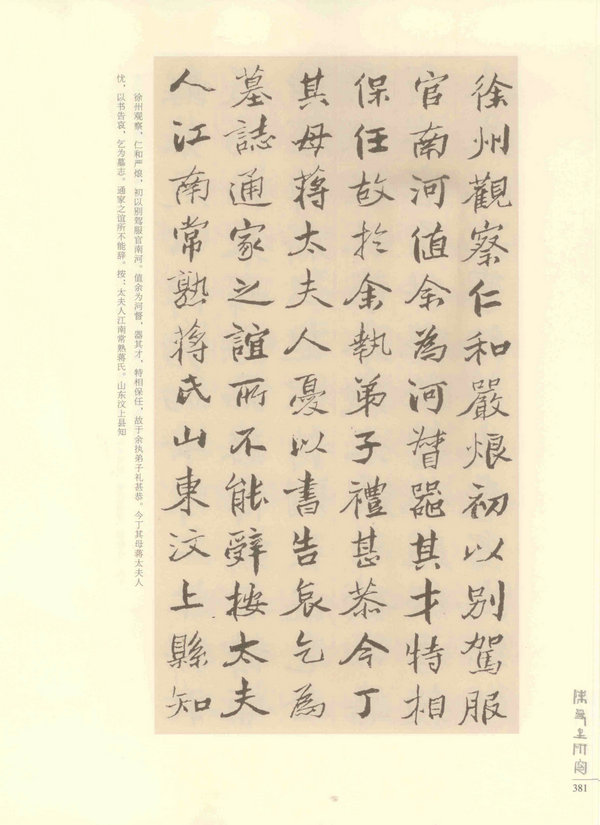 徐州觀察仁和嚴烺初以别駕服
官南河值余為河督器其才特相
保任故於余執弟子禮甚恭今丁
其母蔣太夫人憂以書告哀乞為
墓誌通家之誼所不能辭按太夫
人江南常熟蔣氏山東汶上縣知
徐州观察、仁和严烺，初以别驾服官南河。值余为河督，器其才，特相保任，故于余执弟子礼甚恭。今丁其母蒋太夫人
忧，以书告哀，乞为墓志。通家之谊所不能辞。按：太夫人江南常熟蒋氏。山东汶上县知
381